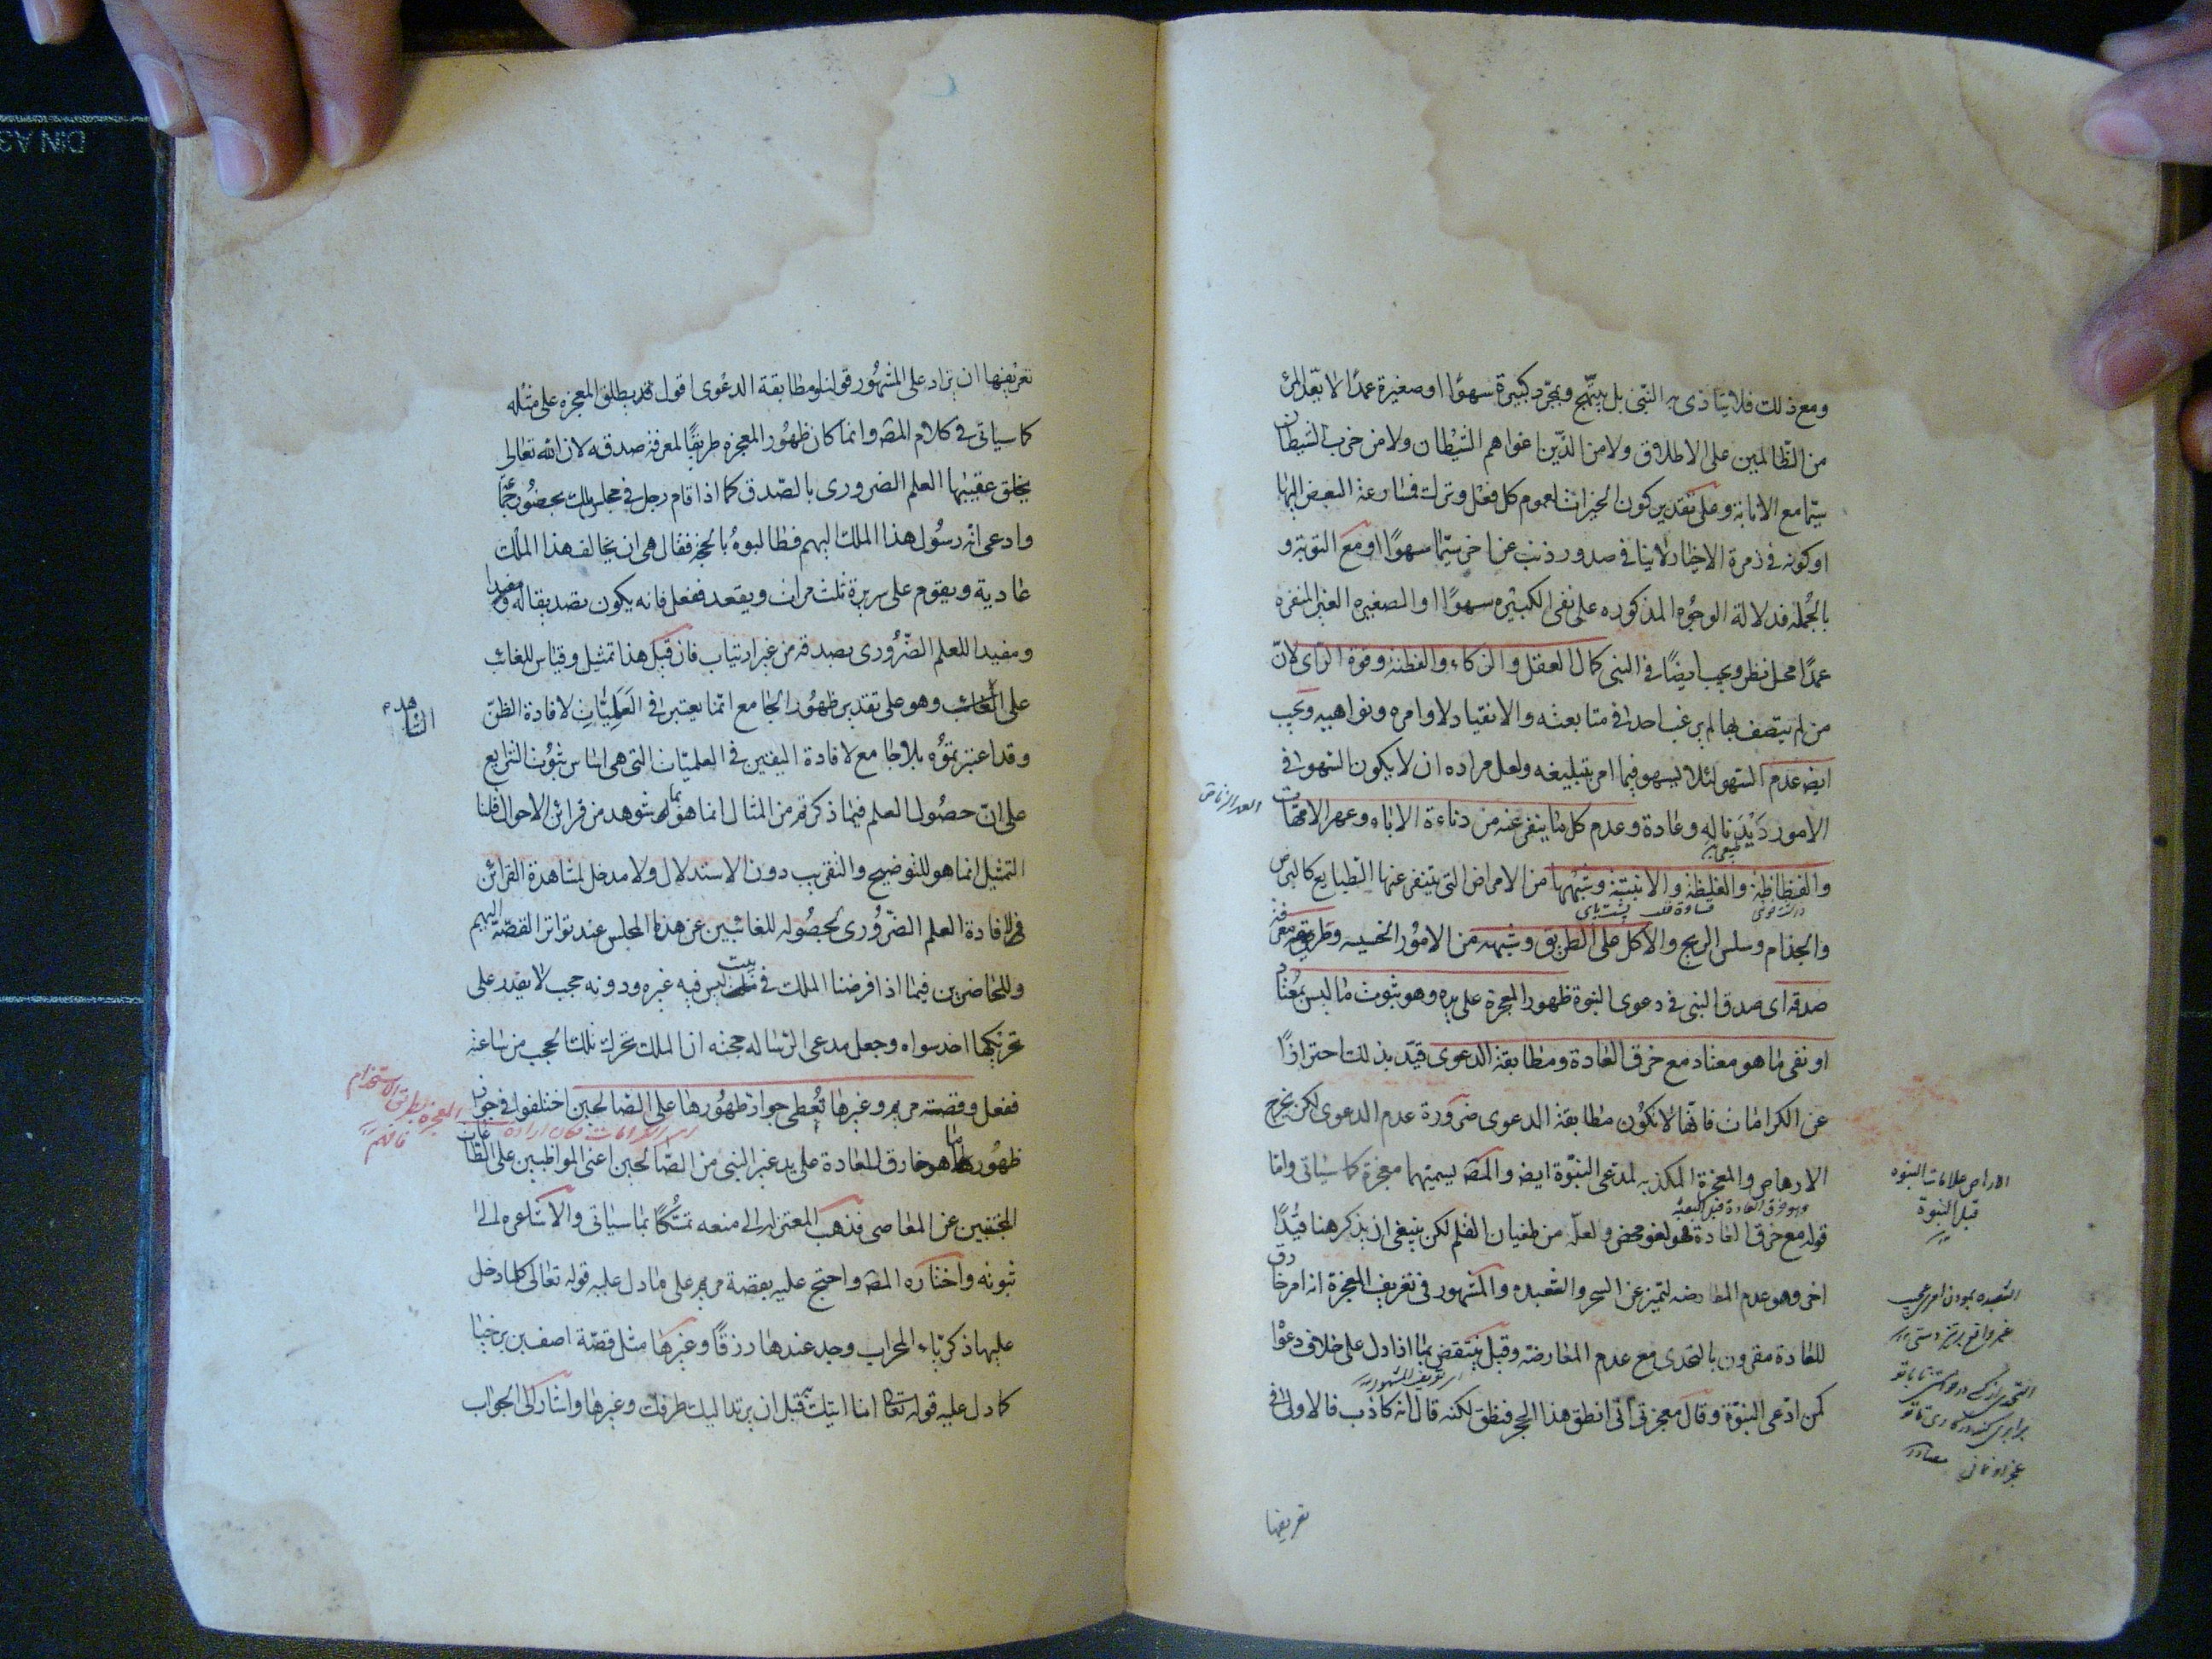 ومع ذلك فلا يتاذى به النبى بل يبتهج وبمجرد كبيرة سهوًا او صغيرة عمدًا لا يعد المرء
من الظالمين على الاطلاق ولا من الذين اغواهم الشيطان ولا من حزب الشيطان
سيما مع الانابة وعلى تقدير كون الخيرات لعموم كل فعل وترك فمسارعة البعض اليها
او كونه فى زمرة الاخيار لا ينافى صدور ذنب عن اخر سيما سهوًا او مع التوبة و
بالجملة فدلالة الوجوه المذكوره على نفى الكبيره سهوًا او الصغيره الغير المنفره
عمدًا محل نظر ويجب ايضًا فى النبى كمال العقل والذكاء والفطنة وقوة الراى لانّ
من لم يتصف بها لم يرغب احد فى متابعته والانقياد لاوامره ونواهيه ويجب
ايضه عدم السهو لئلا يسهو فيما امر بتبليغه ولعل مراده ان لا يكون السهو فى
الامور ديدنا له وعادة وعدم كل ما ينفر عنه من دناءة الاباء وعهر الامهات
والفظاظة والغليظة والابنة وشبهها من الامراض التى يتنفر عنها الطبايع كالبرص
والجذام وسلس الريح والاكل على الطريق وشبهه من الامور الخسيسه وطريق معرفة
صدقه اى صدق النبى فى دعوى النبوة ظهور المعجزة على يده وهو ثبوت ما ليس بمعتاد
او نفى ما هو معتاد مع خرق العادة ومطابقة الدعوى قيّد بذلك احترازًا
عن الكرامات فانها لا تكون مطابقة الدعوى ضرورة عدم الدعوى لكن يخرج
الارهاص والمعجزة المكذبه لمدعى النبوّة ايضه والمصه يسميهما معجزة كما سياتى واما
قوله مع خرق العادة فهو لغو محض ولعلّه من طغيان القلم لكن ينبغى ان يذكر هنا قيدًا
اخر وهو عدم المعارضه لتميز عن السحر والشعبده والمشهور فى تعريف المعجزة انه امر خارق
للعادة مقرون بالتحدى مع عدم المعارضه وقيل ينتقض بما اذا دل على خلاف دعواه
كمن ادّعى النبوّة وقال معجزتى انى انطق هذا الحجر فنطق لكنه قال انه كاذب فالاولى فى
الارهاص علامات النبوه
قبل النبوة
وهو خرق العادة قبل البعثه
اى تعريف المشهور
تعريفها
تعريفها ان يزاد على المشهور قولنا ومطابقة الدعوى اقول قد يطلق المعجزه على مثله
كما سياتى فى كلام المصه وانما كان ظهور المعجزه طريقًا لمعرفة صدقه لان الله تعالى
يخلق عقيبها العلم الضرورى بالصّدق كما اذا قام رجل فى مجلس ملك بحضور جماعة
وادعى انه رسول هذا الملك اليهم فطالبوه بالحجة فقال هى ان يخالف هذا الملك
عادته ويقوم على سريره ثلث مرات ويقعد ففعل فانه يكون تصديقا له
ومفيدا للعلم الضّرورى بصدقه من غير ارتياب فان قيل هذا تمثيل وقياس للغائب
على الغائب وهو على تقدير ظهور الجامع انما يعتبر فى العمليّات لافادة الظنّ
الشاهد
وقد اعتبرتموه بلا جامع لافادة اليقين فى العلميّات التى هى اساس ثبوت الشرايع
على انّ حصول العلم فيما ذكرتم من المثال انما هو لما شوهد من قرائن الاحوال قلنا
التمثيل انما هو للتوضيح والتقريب دون الاستدلال ولا مدخل لمشاهدة القرائن
فى افادة العلم الضّرورى لحصوله للغائبين عن هذا المجلس عند تواتر القصّة اليهم
وللحاضرين فيما اذا فرضنا الملك فى بيت ليس فيه غيره ودونه حجب لا يقدر على
تحريكها احد سواه وجعل مدعى الرساله حجته ان الملك تحرك تلك الحجب من ساعته
ففعل وقصّة مريم وغيرها تُعطى جواز ظهورها على الصالحين اختلفوا فى جواز
ظهور ما هو خارق للعادة على يد غير النبى من الصّالحين اعنى المواظبين على الطاعات
المجتنبين عن المعاصى فذهب المعتزله الى منعه تمسّكًا بما سياتى والاشاعره الى
ثبوته واختاره المصه واحتج عليه بقصة مريم على ما دل عليه قوله تعالى كلما دخل
عليها ذكريّاء المحراب وجد عندها رزقًا وغيرها مثل قصّة اصف بن برخيا
كما دل عليه قوله تعالى انا اتيك به قبل ان يرتد اليك طرفك وغيرها واشار الى الجواب